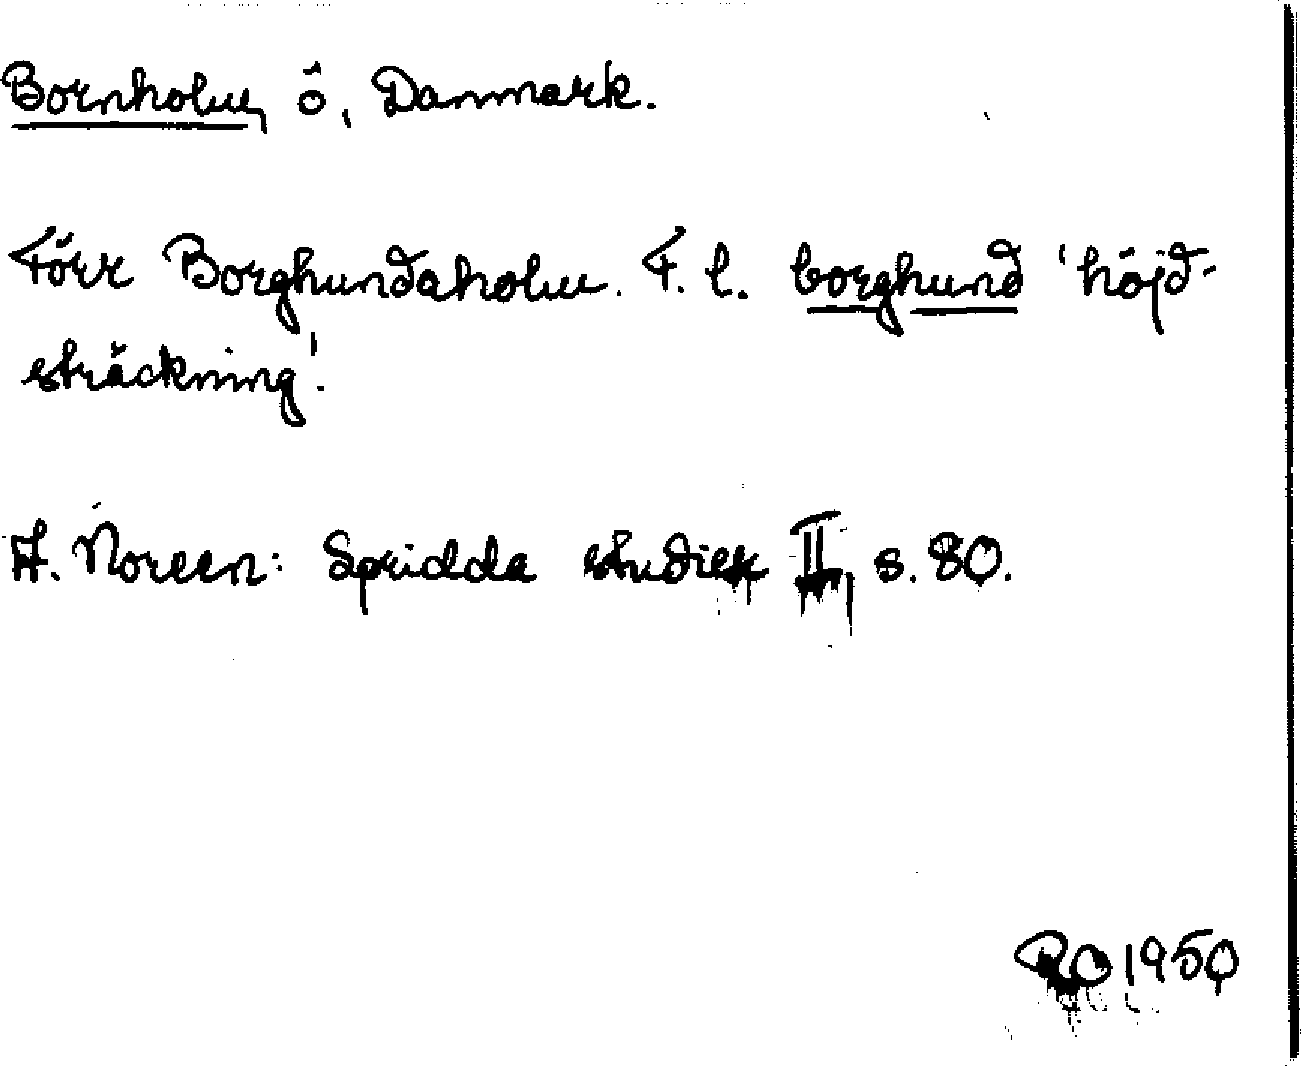 Bornholm, ö, Danmark.
Förr Borghundaholm. F. l. borghund 'höjd-
sträckning'.
A. Noreen: Spridda studier II, s. 80.
RO 1950